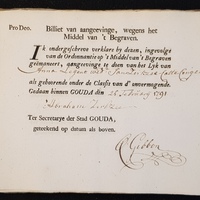 Pro Deo. Billiet van aangeevinge, wegens het
Middel van 't Begraven.
Ik ondergeschreve verklare by dezen, ingevolge
van de Ordonnantie op 't Middel van 't Begraven
geëmaneert, aangevinge te doen van het Lyk van
Anna
als gehoorende onder de Classis van d' onvermogende.
Gedaan binnen GOUDA den 26 February 1791
Abraham
Ter Secretarye der Stad GOUDA,
geteekend op datum als boven.